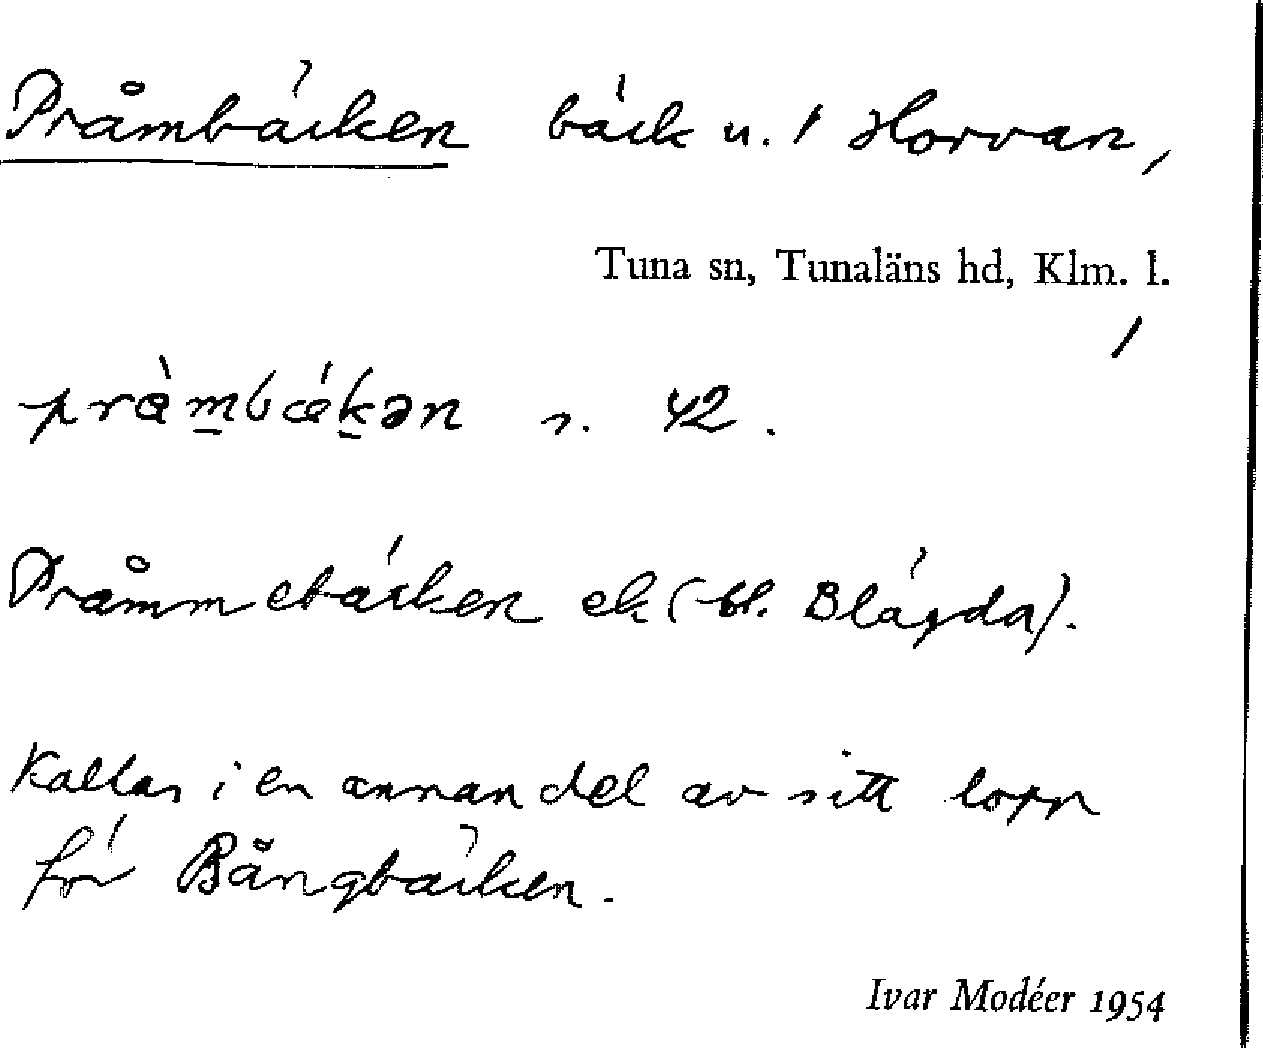 Pråmbäcken bäck u. / Horvan,
Tuna sn, Tunaläns hd, Klm. l.
pràmbǽkən s. 42.
Pråmmebäcken ek (bl. Blägda).
Kallas i en annan del av sitt lopp
för Bångbäcken.
Ivar Modéer 1954